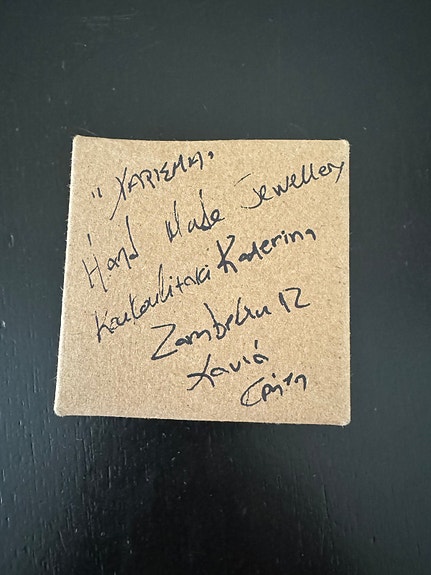 "ΧΑΡΙΣΜΑ"
Hand Made Jewellery
Koukoulitaki Katerina
Zambeliu 12
Χανιά
Κρήτη